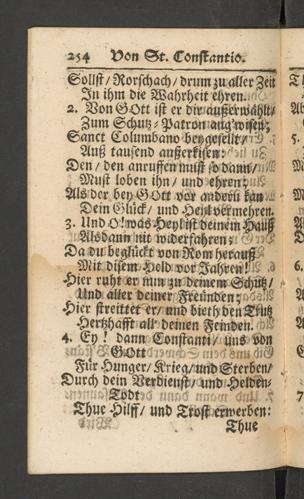 254 Von St. Constantio.
Sollst / Rorschach / drum zu aller Zeit
In ihm die Wahrheit ehren.
2. Von GOtt ist er dir außerwählt /
Zum Schutz / Patron ang'wisen;
Sanct Columbano beygesellt /
Auß tausend außerkisen:
Den / den anruffen must so dann /
Must loben ihn / und ehren:
Als der bey GOtt vor andern kan
Dein Glück / und Heyl vermehren.
3. Und O! was Heyl ist deinem Hauß
Alsdann nit widerfahren /
Da du beglückt von Rom herauß
Mit disem Held vor Jahren!
Hier ruht er nun zu deinem Schutz /
Und aller deiner Freunden;
Hier streittet er / und bieth den Trutz
Hertzhafft all' deinen Feinden.
4. Ey! dann Constanti / uns von
GOtt
Für Hunger / Krieg / und Sterben /
Durch dein Verdienst / und Helden-
Todt
Thue Hilff / und Trost erwerben:
Thue